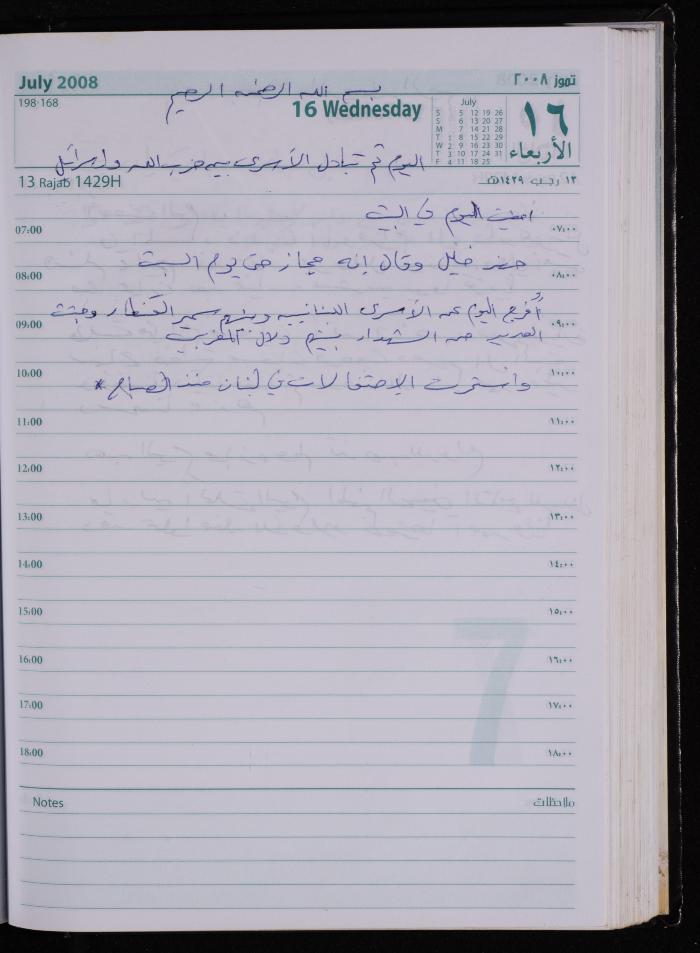 July 2008
تموز ٢٠٠٨
بسم الله الرحمن الرحيم
198-168
16 Wednesday
July
S 5 12 19 26
S 6 13 20 27
M 7 14 21 28
T 1 8 15 22 29
W 2 9 16 23 30
T 3 10 17 24 31
F 4 11 18 25
١٦
الأربعاء
اليوم تم تبادل الأسرى بين حزب الله واسرائيل
13 Rajab 1429H
١٣ رجب ١٤٢٩هـ
أمضيت اليوم في البيت
07:00
٠٧:٠٠
حضر خليل وقال إنه مجاز حتى يوم السبت
08:00
٠٨:٠٠
أُفرج اليوم عن الأسرى اللبنانيين ومنهم سمير القنطار وجثث
09:00
٠٩:٠٠
العديد من الشهداء بينهم دلال المغربي
10:00
١٠:٠٠
واستمرت الإحتفالات في لبنان منذ الصباح *
11:00
١١:٠٠
12:00
١٢:٠٠
13:00
١٣:٠٠
14:00
١٤:٠٠
15:00
١٥:٠٠
16:00
١٦:٠٠
7
17:00
١٧:٠٠
18:00
١٨:٠٠
Notes
ملاحظات